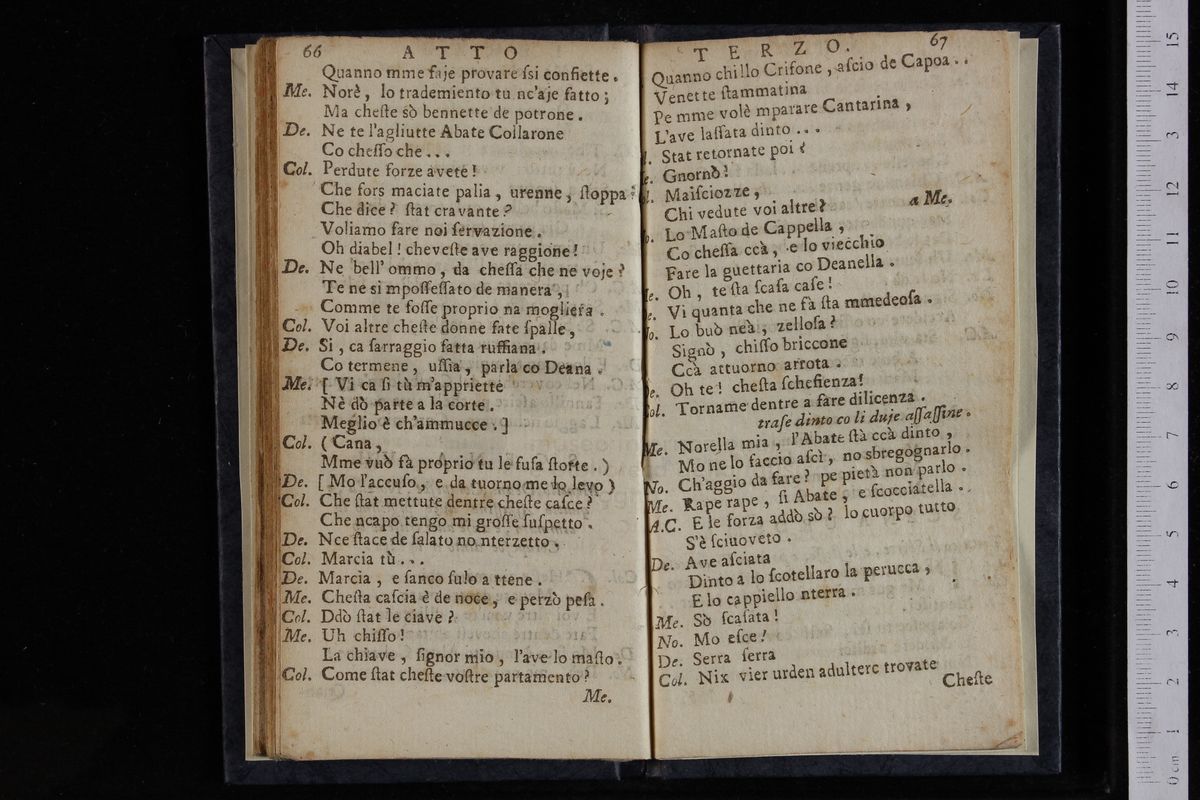 66 ATTO
Quanno mme faje provare ſsi confiette.
Me. Norè, lo trademiento tu nc'aje fatto;
Ma cheſte sò bennette de potrone.
De. Ne te l'agliutte Abate Collarone
Co cheſſo che...
Col. Perdute forze avete!
Che fors maciate palia, urenne, ſtoppa?
Che dice? ſtat cravante?
Voliamo fare noi ſervazione.
Oh diabel! cheveſte ave raggione!
De. Ne bell' ommo, da cheſſa che ne voje?
Te ne si mpoſſeſſato de manera,
Comme te foſſe proprio na mogliera.
Col. Voi altre cheſte donne fate ſpalle,
De. Si, ca ſarraggio fatta ruffiana.
Co termene, uſſia, parla co Deana.
Me. [ Vi ca ſi tù m'appriette
Nè dò parte a la corte.
Meglio è ch'ammucce.]
Col. (Cana,
Mme vuò fà proprio tu le fuſa ſtorte.)
De. [ Mo l'accuſo, e da tuorno me lo levo)
Col. Che ſtat mettute dentre cheſte caſce?
Che ncapo tengo mi groſſe ſuſpetto.
De. Nce ſtace de ſalato no nterzetto.
Col. Marcia tù...
De. Marcia, e ſanco ſulo a ttene.
Me. Cheſta caſcia è de noce, e perzò peſa.
Col. Ddò ſtat le ciave?
Me. Uh chiſſo!
La chiave, ſignor mio, l'ave lo maſto.
Col. Come ſtat cheſte voſtre partamento?
Me.
TERZO. 67
Quanno chillo Criſone, aſcio de Capoa..
Venette ſtammatina
Pe mme volè mparare Cantarina,
L'ave laſſata dinto...
l. Stat retornate poi?
e. Gnornò!
l. Maiſciozze,
Chi vedute voi altre? a Me.
o. Lo Maſto de Cappella,
Co cheſſa ccà, e lo viecchio
Fare la guettaria co Deanella.
e. Oh, te ſta ſcaſa caſe!
e. Vi quanta che ne fà ſta mmedeoſa.
No. Lo buò neà, zelloſa?
Signò, chiſſo briccone
Ccà attuorno arrota.
De. Oh te! cheſta ſchefienza!
Col. Torname dentre a fare dilicenza.
traſe dinto co li duje aſſaſſine.
Me. Norella mia, l'Abate ſtà ccà dinto,
Mo ne lo faccio aſcì, no sbregognarlo.
No. Ch'aggio da fare? pe pietà non parlo.
Me. Rape rape, ſi Abate, e ſcocciatella.
A.C. E le forza addò sò? lo cuorpo tutto
S'è ſciuoveto.
De. Ave aſciata
Dinto a lo ſcotellaro la perucca,
E lo cappiello nterra.
Me. Sò ſcaſata!
No. Mo eſce!
De. Serra ſerra
Col. Nix vier urden adulterc trovate
Cheſte